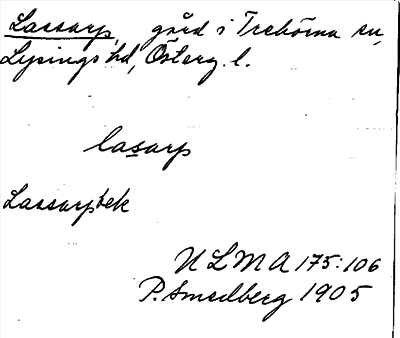 Lassarp, gård i Trehörna sn,
Lysings hd, Österg. l.
lasarp
Lassarpbek
ULMA 175:106
P. Smedberg 1905